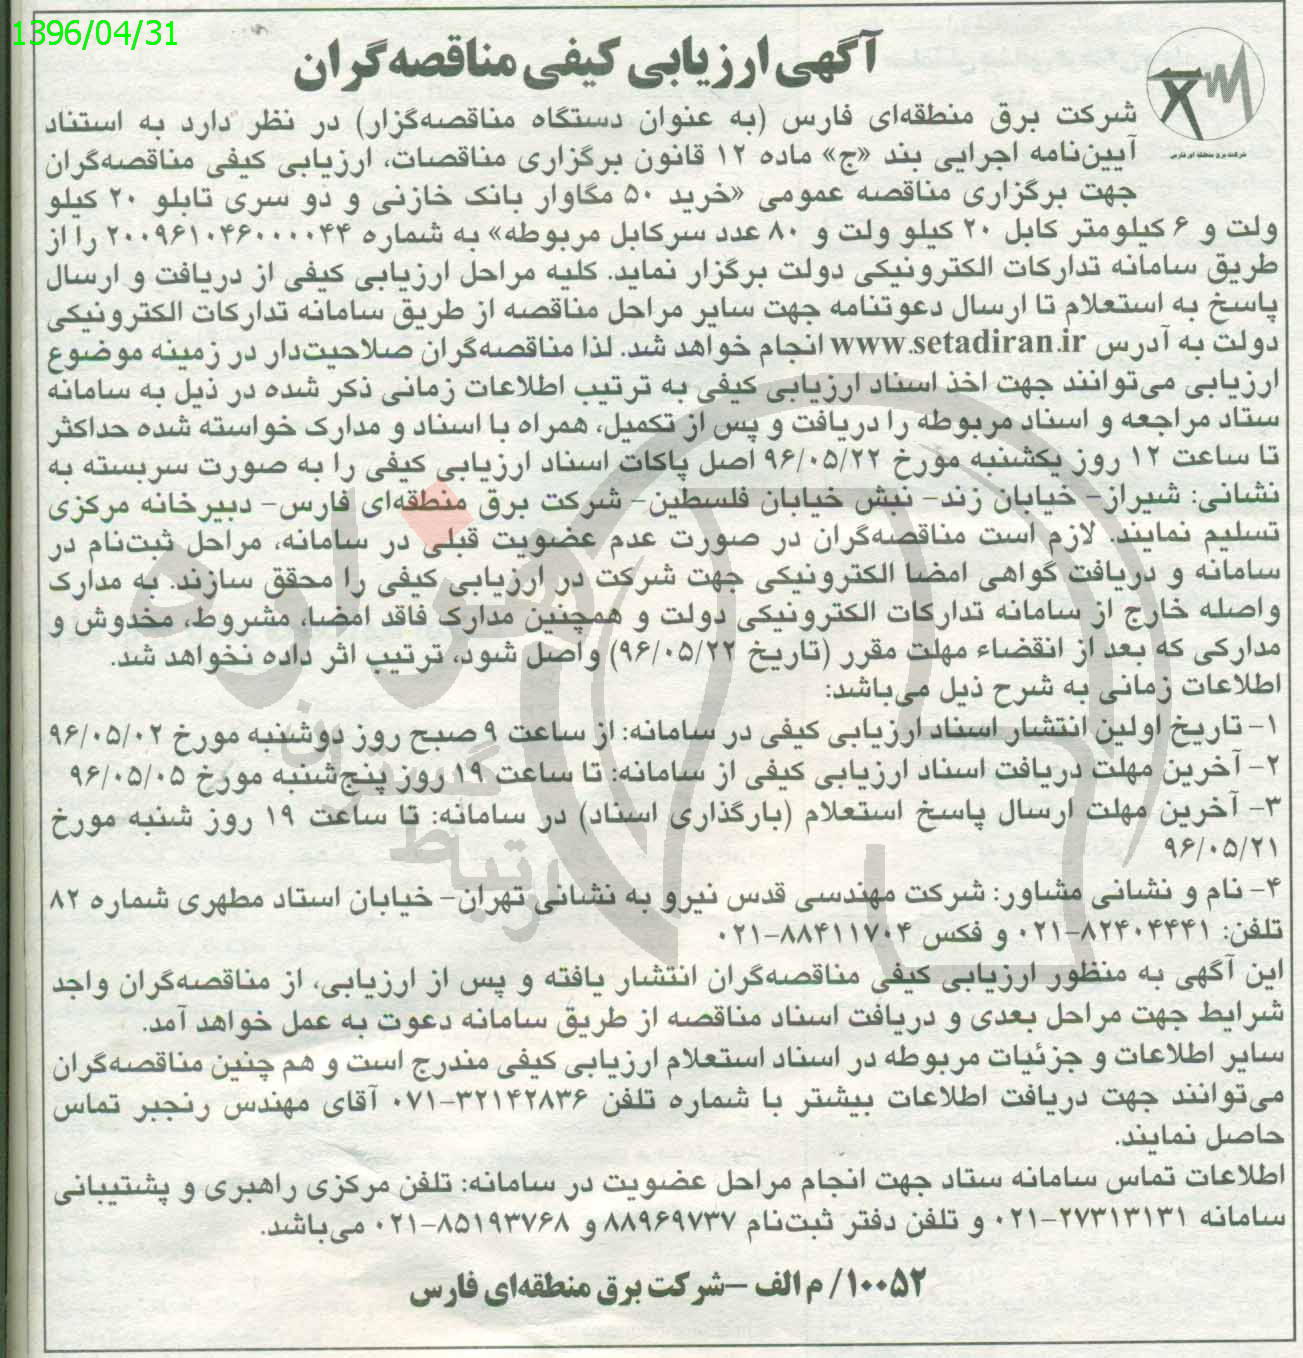 1396/04/31
آگهی ارزیابی کیفی مناقصه‌گران
شرکت برق منطقه‌ای فارس
شرکت برق منطقه‌ای فارس (به عنوان دستگاه مناقصه‌گزار) در نظر دارد به استناد
آیین‌نامه اجرایی بند «ج» ماده ۱۲ قانون برگزاری مناقصات، ارزیابی کیفی مناقصه‌گران
جهت برگزاری مناقصه عمومی «خرید ۵۰ مگاوار بانک خازنی و دو سری تابلو ۲۰ کیلو
ولت و ۶ کیلومتر کابل ۲۰ کیلو ولت و ۸۰ عدد سرکابل مربوطه» به شماره ۲۰۰۹۶۱۰۴۶۰۰۰۰۴۴ را از
طریق سامانه تدارکات الکترونیکی دولت برگزار نماید. کلیه مراحل ارزیابی کیفی از دریافت و ارسال
پاسخ به استعلام تا ارسال دعوتنامه جهت سایر مراحل مناقصه از طریق سامانه تدارکات الکترونیکی
دولت به آدرس www.setadiran.ir انجام خواهد شد. لذا مناقصه‌گران صلاحیت‌دار در زمینه موضوع
ارزیابی می‌توانند جهت اخذ اسناد ارزیابی کیفی به ترتیب اطلاعات زمانی ذکر شده در ذیل به سامانه
ستاد مراجعه و اسناد مربوطه را دریافت و پس از تکمیل، همراه با اسناد و مدارک خواسته شده حداکثر
تا ساعت ۱۲ روز یکشنبه مورخ ۹۶/۰۵/۲۲ اصل پاکات اسناد ارزیابی کیفی را به صورت سربسته به
نشانی: شیراز- خیابان زند- نبش خیابان فلسطین- شرکت برق منطقه‌ای فارس- دبیرخانه مرکزی
تسلیم نمایند. لازم است مناقصه‌گران در صورت عدم عضویت قبلی در سامانه، مراحل ثبت‌نام در
سامانه و دریافت گواهی امضا الکترونیکی جهت شرکت در ارزیابی کیفی را محقق سازند. به مدارک
واصله خارج از سامانه تدارکات الکترونیکی دولت و همچنین مدارک فاقد امضا، مشروط، مخدوش و
مدارکی که بعد از انقضاء مهلت مقرر (تاریخ ۹۶/۰۵/۲۲) واصل شود، ترتیب اثر داده نخواهد شد.
اطلاعات زمانی به شرح ذیل می‌باشد:
۱- تاریخ اولین انتشار اسناد ارزیابی کیفی در سامانه: از ساعت ۹ صبح روز دوشنبه مورخ ۹۶/۰۵/۰۲
۲- آخرین مهلت دریافت اسناد ارزیابی کیفی از سامانه: تا ساعت ۱۹ روز پنج‌شنبه مورخ ۹۶/۰۵/۰۵
۳- آخرین مهلت ارسال پاسخ استعلام (بارگذاری اسناد) در سامانه: تا ساعت ۱۹ روز شنبه مورخ
۹۶/۰۵/۲۱
۴- نام و نشانی مشاور: شرکت مهندسی قدس نیرو به نشانی تهران- خیابان استاد مطهری شماره ۸۲
تلفن: ۸۲۴۰۴۴۴۱-۰۲۱ و فکس ۸۸۴۱۱۷۰۴-۰۲۱
این آگهی به منظور ارزیابی کیفی مناقصه‌گران انتشار یافته و پس از ارزیابی، از مناقصه‌گران واجد
شرایط جهت مراحل بعدی و دریافت اسناد مناقصه از طریق سامانه دعوت به عمل خواهد آمد.
سایر اطلاعات و جزئیات مربوطه در اسناد استعلام ارزیابی کیفی مندرج است و هم چنین مناقصه‌گران
می‌توانند جهت دریافت اطلاعات بیشتر با شماره تلفن ۳۲۱۴۲۸۳۶-۰۷۱ آقای مهندس رنجبر تماس
حاصل نمایند.
اطلاعات تماس سامانه ستاد جهت انجام مراحل عضویت در سامانه: تلفن مرکزی راهبری و پشتیبانی
سامانه ۲۷۳۱۳۱۳۱-۰۲۱ و تلفن دفتر ثبت‌نام ۸۸۹۶۹۷۳۷ و ۸۵۱۹۳۷۶۸-۰۲۱ می‌باشد.
۱۰۰۵۲/ م الف -شرکت برق منطقه‌ای فارس